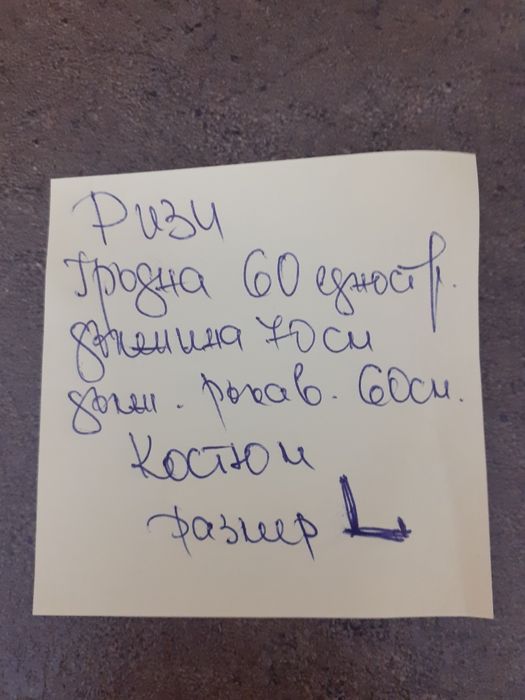 Ризи
Гродна 60 едностр.
дължина 70 см
дълж. ръкав. 60 см.
Костюм
размер L